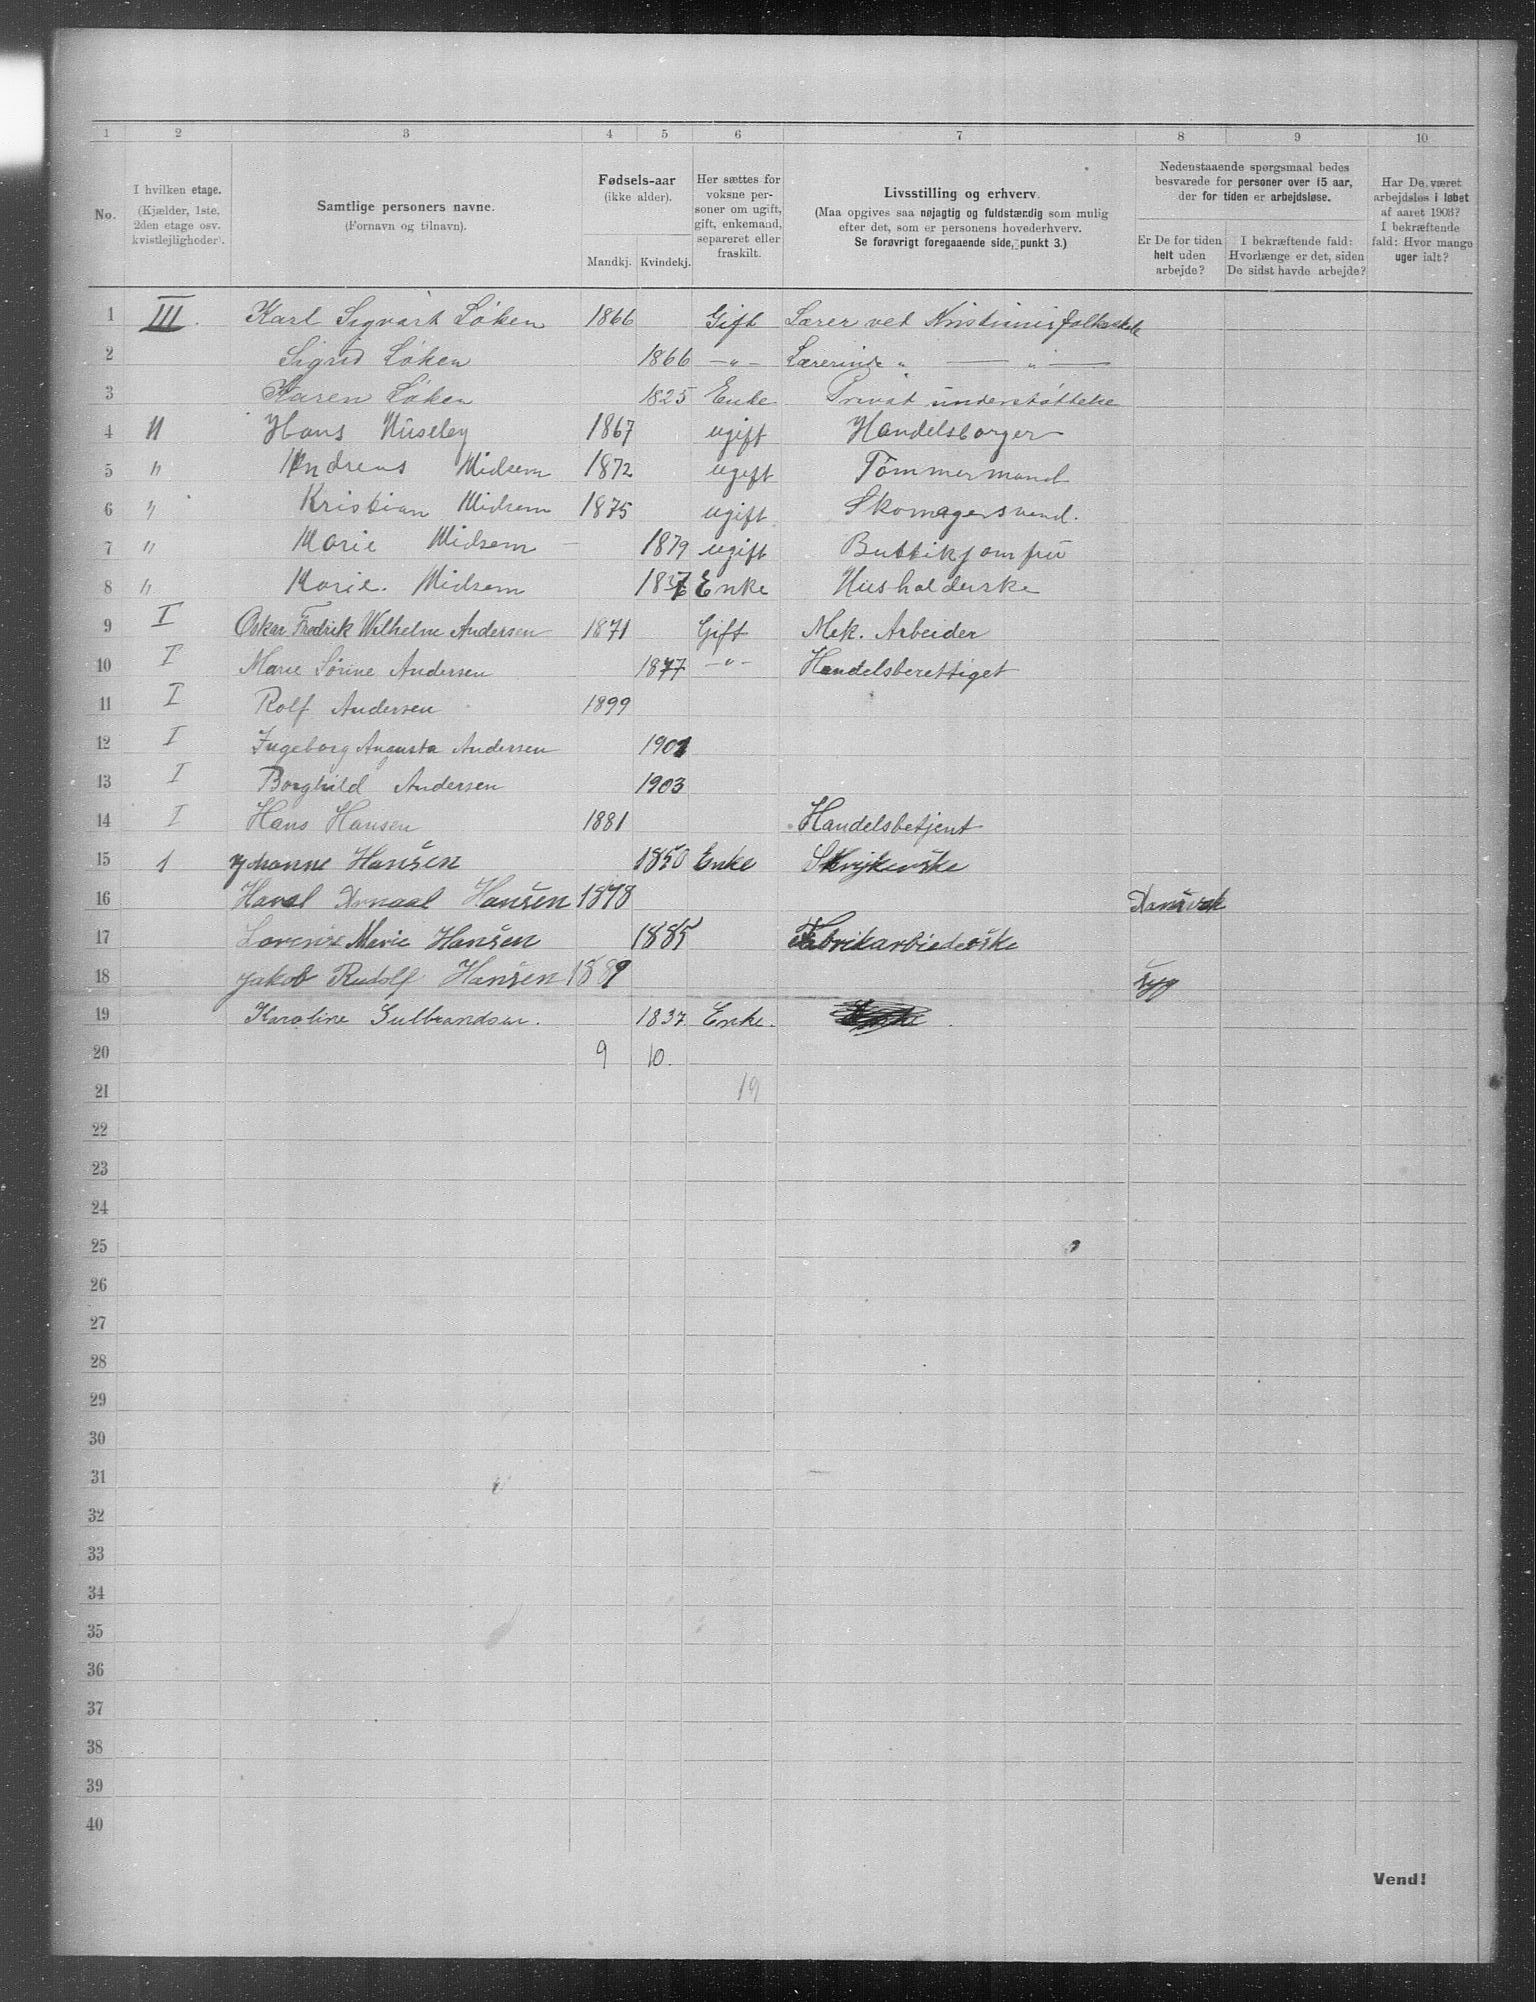 1 2 3 4 5 6 7 8 9 10
No.
I hvilken etage.
(Kjælder, 1ste,
2den etage osv.
kvistlejligheder).
Samtlige personers navne.
(Fornavn og tilnavn).
Fødsels-aar
(ikke alder).
Mandkj. Kvindekj.
Her sættes for
voksne per-
soner om ugift,
gift, enkemand,
separeret eller
fraskilt.
Livsstilling og erhverv.
(Maa opgives saa nøjagtig og fuldstændig som mulig
efter det, som er personens hovederhverv.
Se forøvrigt foregaaende side, punkt 3.)
Nedenstaaende spørgsmaal bedes
besvarede for personer over 15 aar,
der for tiden er arbejdsløse.
Er De for tiden
helt uden
arbejde?
I bekræftende fald:
Hvorlænge er det, siden
De sidst havde arbejde?
Har De været
arbejdsløs i løbet
af aaret 1903?
I bekræftende
fald: Hvor mange
uger ialt?
1 III. Karl Sigvart Løken 1866 Gift Lærer ved Kristiania folkeskole
2 Sigrid Løken 1866 —"— Lærerinde " — " —
3 Karen Løken 1825 Enke Privat understøttelse
4 II Hans Huseby 1867 ugift Handelsborger
5 " Andreas Midsem 1872 ugift Tømmermand
6 " Kristian Midsem 1875 ugift Skomagersvend.
7 " Marie Midsem 1879 ugift Buttikjomfru
8 " Marie. Midsem 1837 Enke Husholderske
9 I Oskar Fredrik Wilhelm Andersen 1871 Gift Mek. Arbeider
10 I Marie Sørine Andersen 1877 —"— Handelsberettiget
11 I Rolf Andersen 1899
12 I Ingeborg Augusta Andersen 1901
13 I Borghild Andersen 1903
14 I Hans Hansen 1881 Handelsbetjent
15 1 Johanne Hansen 1850 Enke Strykerske
16 Hansen 1878
17 Marie Hansen 1885 Fabrikarbiederske
18 Jakob Rudolf Hansen 1889 syg
19 Karoline Gulbrandsen. 1837 Enke.
20 9 10.
21 19
22
23
24
25
26
27
28
29
30
31
32
33
34
35
36
37
38
39
40
Vend!